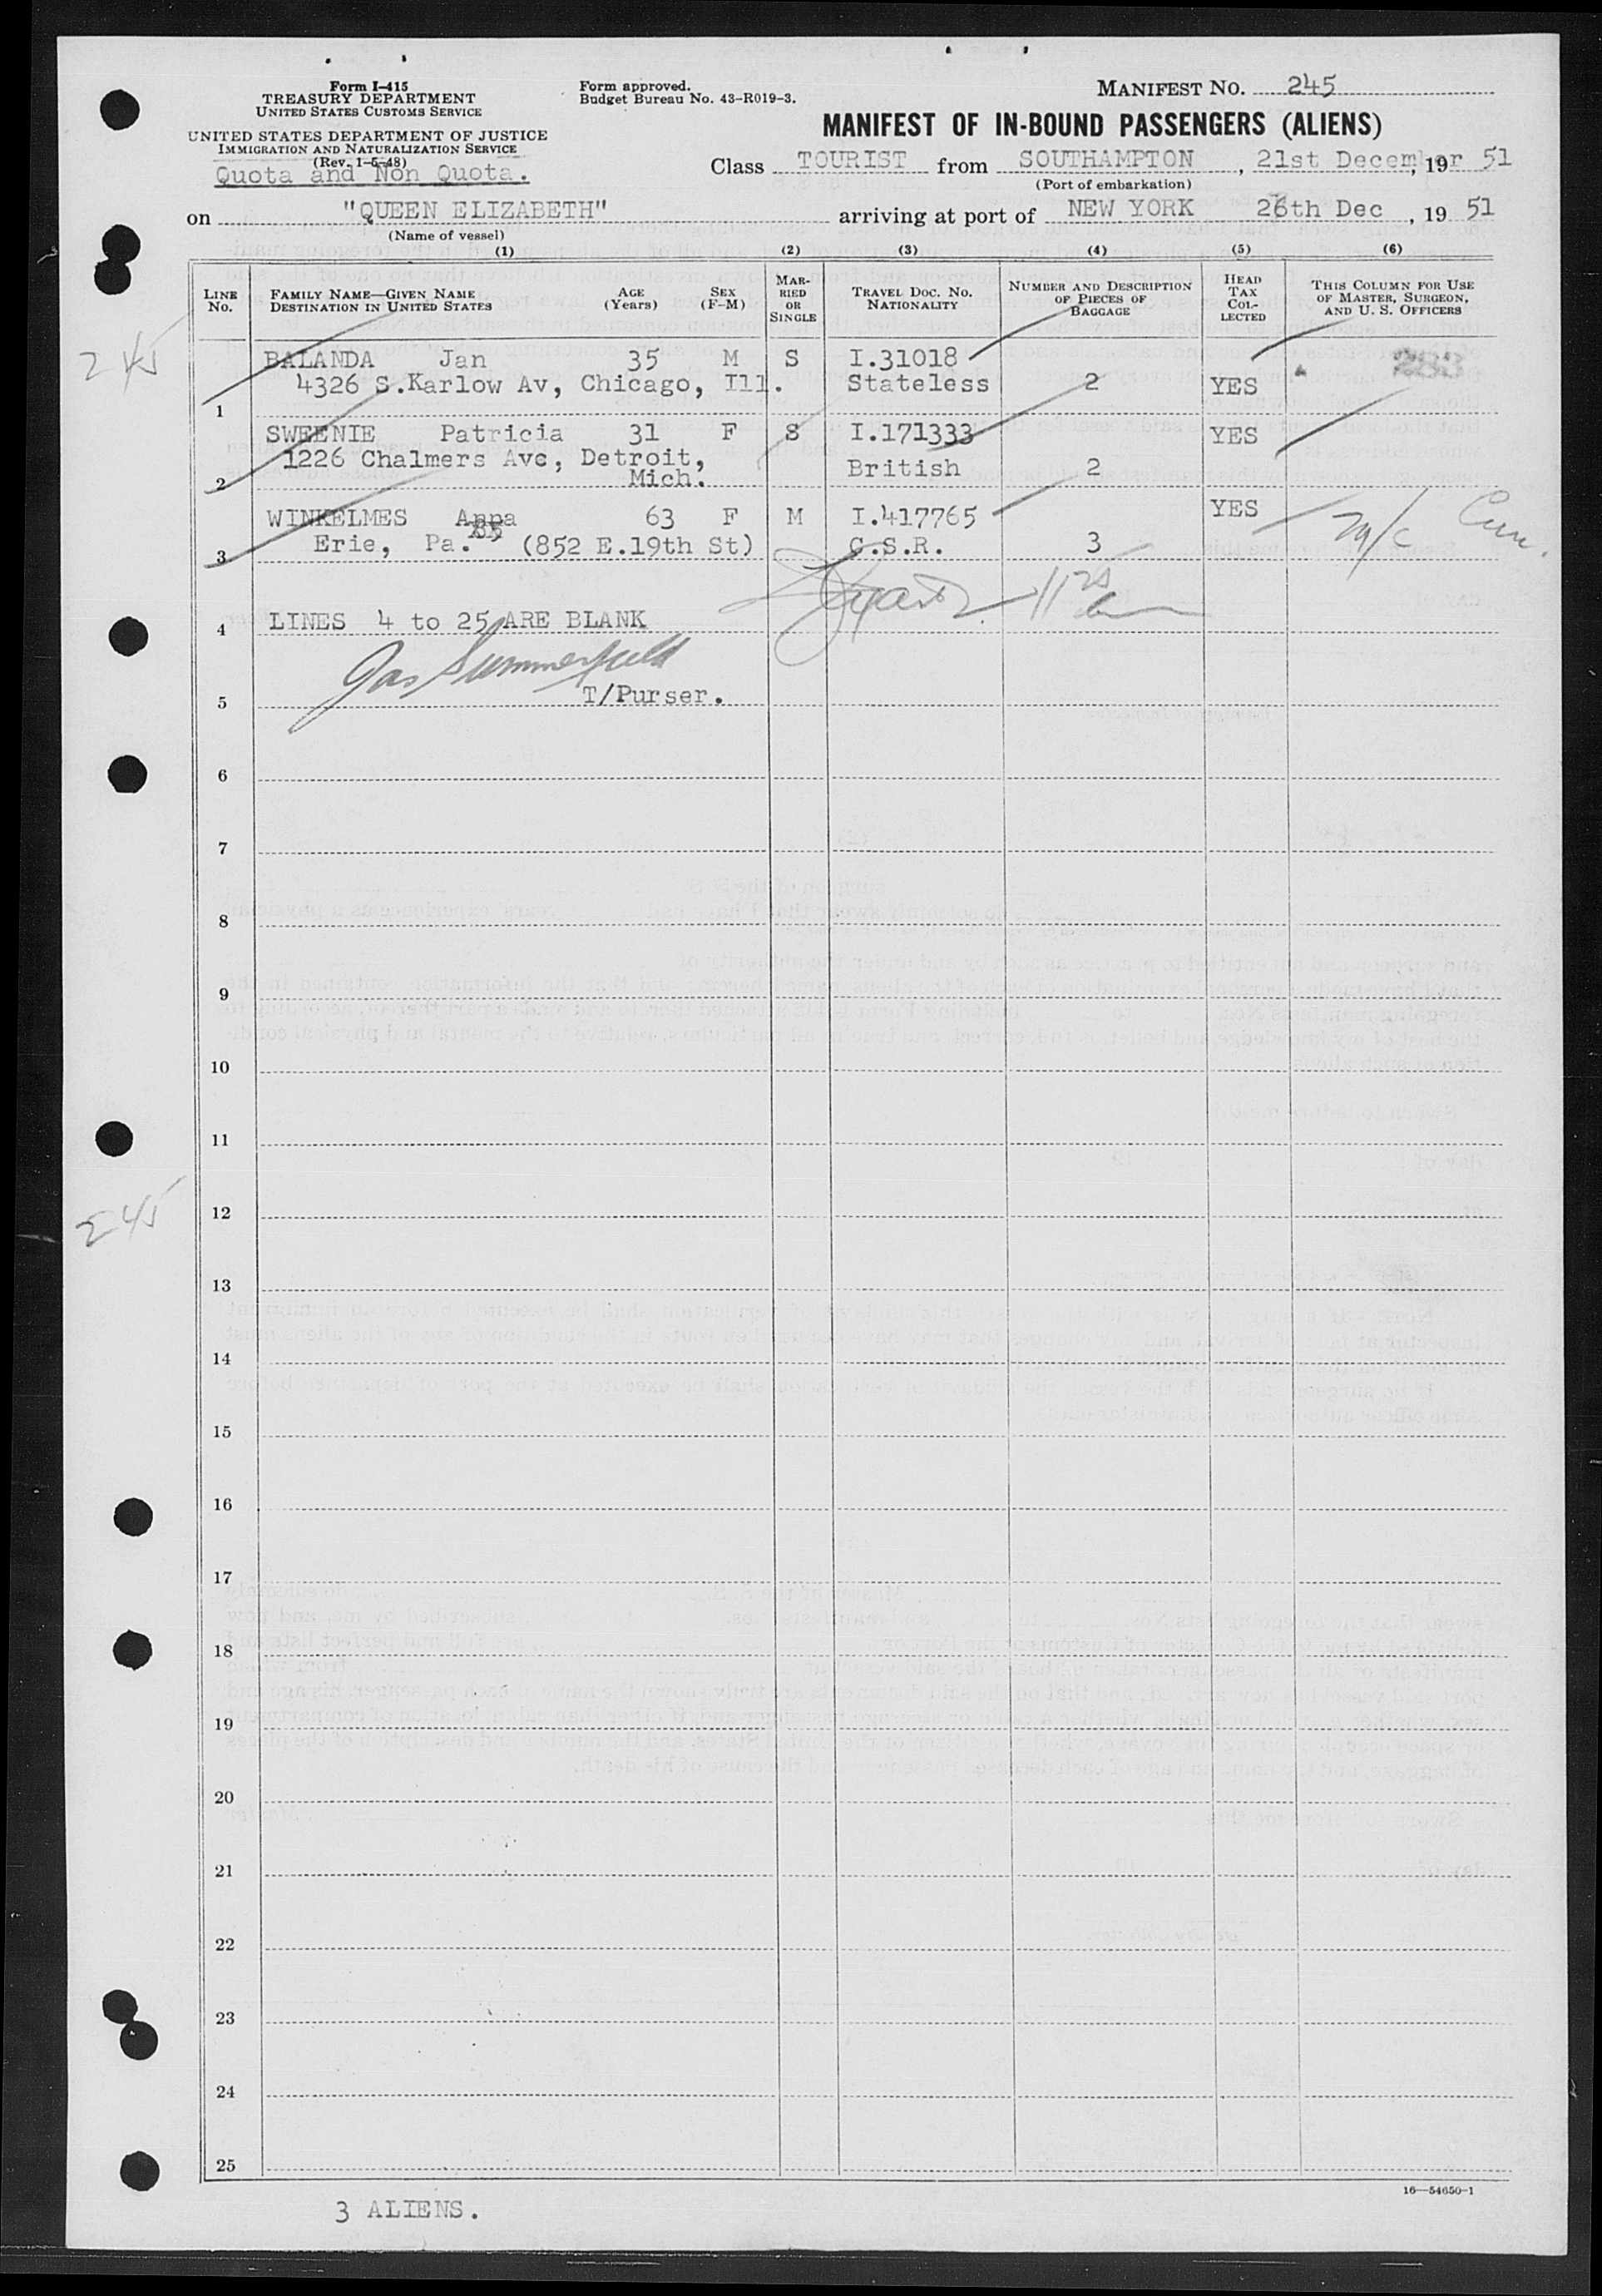 Form I-415
TREASURY DEPARTMENT
UNITED STATES CUSTOMS SERVICE
UNITED STATES DEPARTMENT OF JUSTICE
IMMIGRATION AND NATURALIZATION SERVICE
(Rev. 1-6-48)
Quota and Non Quota.
Form approved.
Budget Bureau No. 43-R019-3.
MANIFEST NO. 245
MANIFEST OF IN-BOUND PASSENGERS (ALIENS)
Class TOURIST from SOUTHAMPTON, 21st December, 19 51
(Port of embarkation)
on "QUEEN ELIZABETH" arriving at port of NEW YORK 26th Dec, 19 51
(Name of vessel)
(1) (2) (3) (4) (5) (6)
LINE No.
FAMILY NAME—GIVEN NAME DESTINATION IN UNITED STATES
AGE (Years)
SEX (F-M)
MARRIED OR SINGLE
TRAVEL DOC. NO. NATIONALITY
NUMBER AND DESCRIPTION OF PIECES OF BAGGAGE
HEAD TAX COLLECTED
THIS COLUMN FOR USE OF MASTER, SURGEON, AND U. S. OFFICERS
245
BALANDA Jan 35 M S I.31018
4326 S.Karlow Av, Chicago, Ill. Stateless 2 YES
1
SWEENIE Patricia 31 F S I.171333 YES
1226 Chalmers Ave, Detroit, British 2
2 Mich.
WINKELMES Anna 63 F M I.417765 YES
Erie, Pa. (852 E.19th St) C.S.R. 3
3
4 LINES 4 to 25 ARE BLANK
Jas Summerfield
5 T/Purser.
6
7
8
9
10
11
245
12
13
14
15
16
17
18
19
20
21
22
23
24
25
16—54650-1
3 ALIENS.